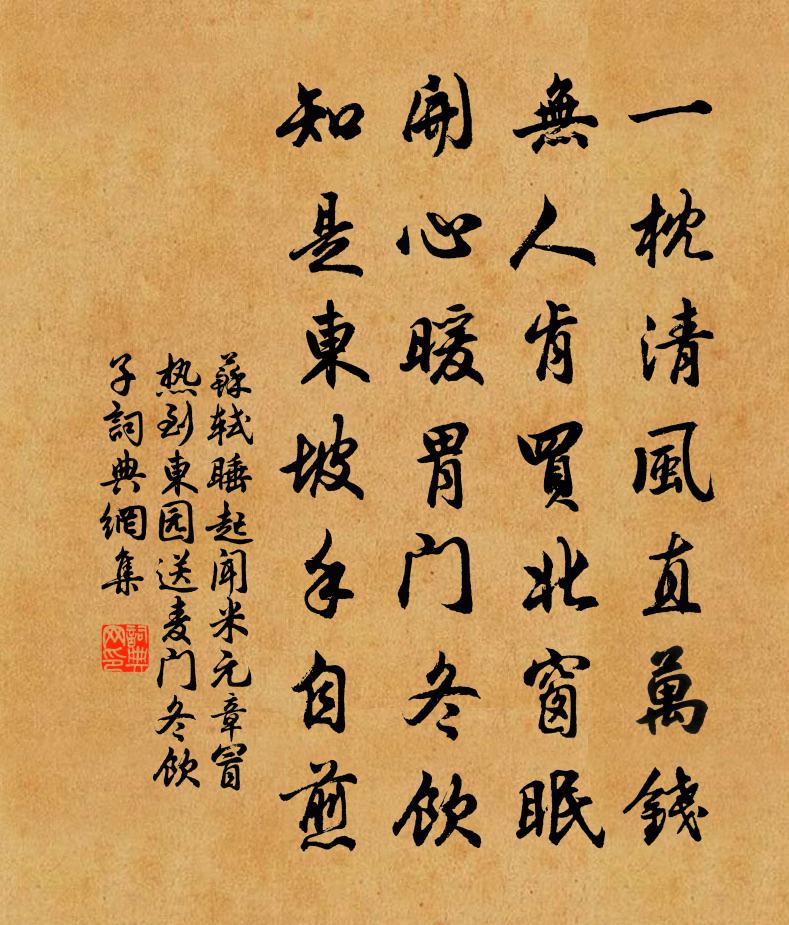 一枕清風直萬錢
無人肯買北窗眠
開心暖胃門冬飲
知是東坡手自煎
蘇軾睡起聞米元章冒
热到東园送麦门冬飲
子詞典網集
詞典网印